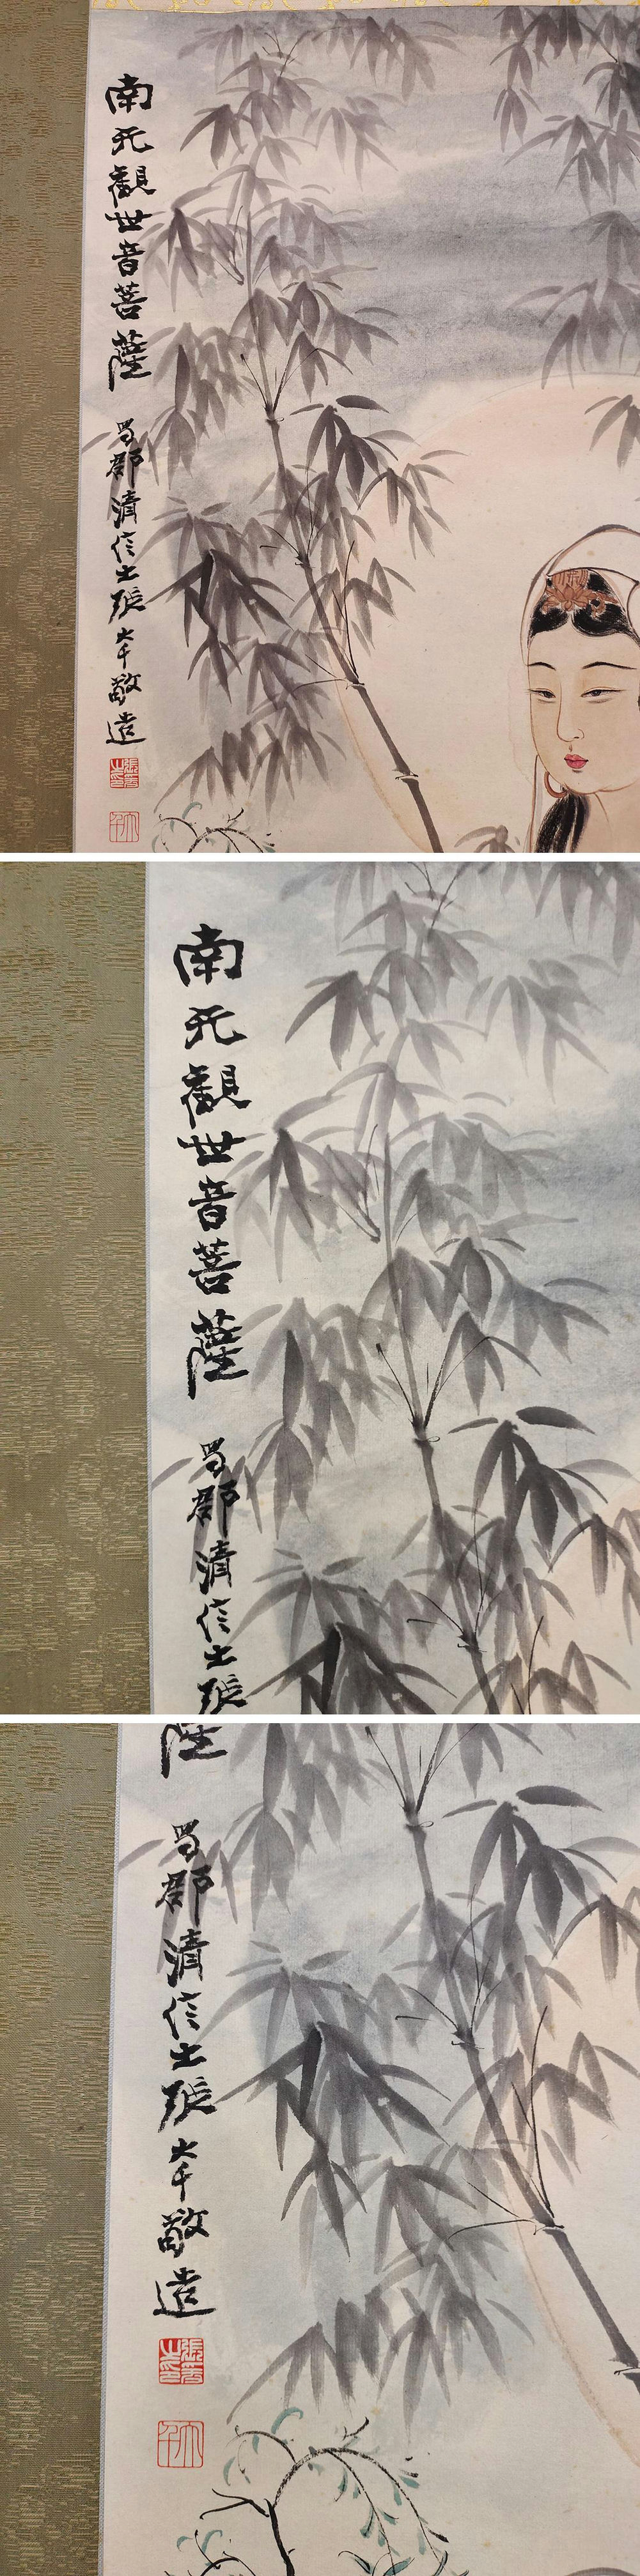 南无觀世音菩薩
蜀郡清信士張大千敬造
張爰之印
大千
南无觀世音菩薩
蜀郡清信士張
薩
蜀郡清信士張大千敬造
張爰之印
大千